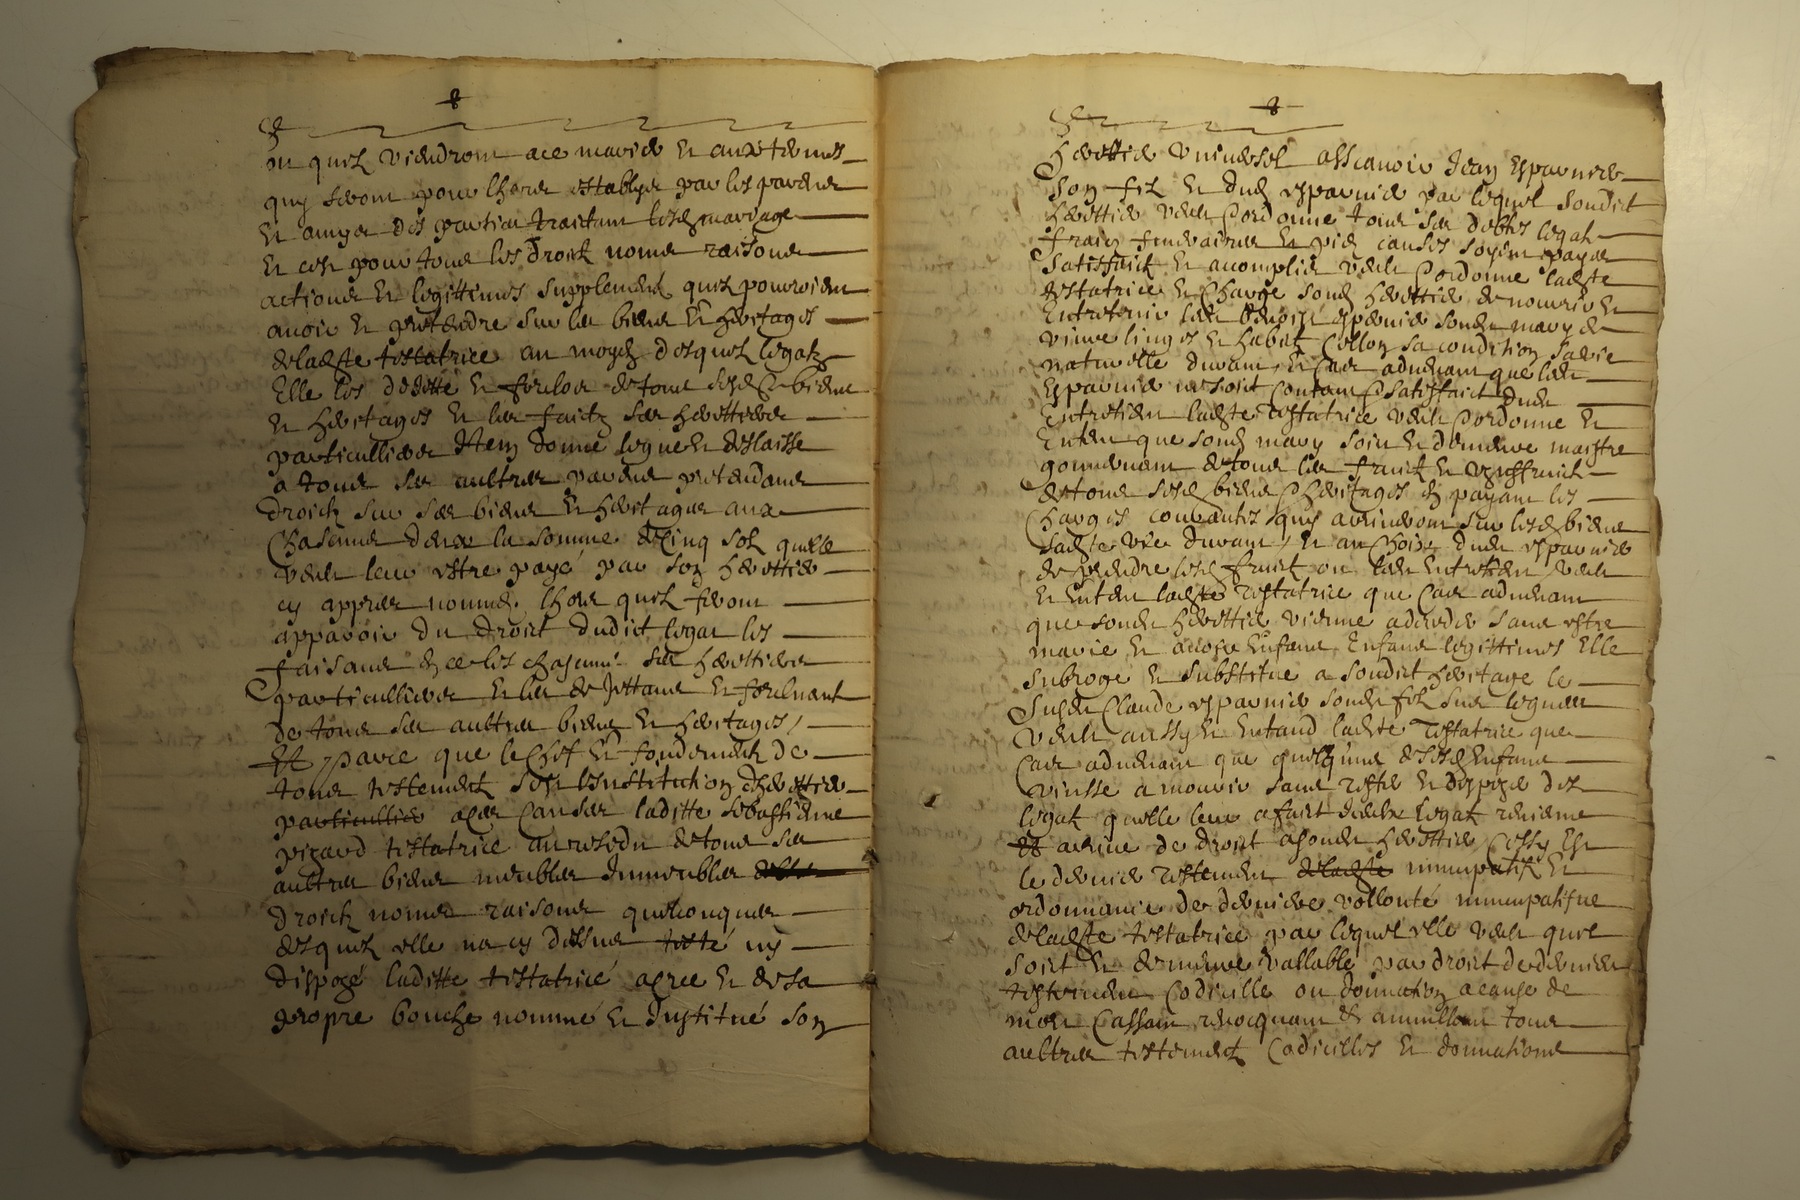 ou quilz viendront a ce marier et aux termes
quy seront pour lhors establys par les parens
et amys des parties traictant lesd mariages
et cest pour tous les droictz noms raisons
actions et legittimes supplement quilz pourroient
avoir et pretendre sur les biens et heritages
de ladite testatrice au moyen desquelz legatz
Elle les dejette et forclos de tous sesd biens
et heritages et les faict ses heritiers
particulliers Item donne legue et deslaisse
a tous ses aultres parens pretendans
droictz sur ses biens et heritages aux
chascuns deux la somme de cinq solz quelle
veult leur estre payé par son heritier
cy appres nommé lhors quilz feront
apparoir du droict dudict legat les
faisant en ce les chascuns ses heritiers
particulliers et les dejettant et forcluant
de tous ses aultres biens et heritages /
Et parce que le chef et fondement de
tous testement est linstitution dheritier
particullier a ces causes laditte sebastienne
picard testatrice au residu de tous ses
aultres biens meubles immeubles
droictz noms raisons quelconques
desquelz elle na cy dessus testé ny
disposé laditte testatrice a cree et de sa
propre bouche nommé et institué son
heritier universel asscavoir Jean esparnier
son filz et dud esparnier par lequel sondict
heritier veult et ordonne tous ses debtes legatz
fraiz funeraires et pies causes soyent payes
satisfaict et accomplies veult et ordonne ladite
testatrice et charge sond heritier de nourrir et
entretenir led benoist esparnier sondit mary de
vivre linges et habitz sellon sa condition sa vie
naturelle durant, et cas advenant que led
esparnier ne soit contant et satisfaict dudit
entretien ladite testatrice veult et ordonne et
entend que sond mary soit et demeure maistre
gouvernant de tous les fruictz et usuffruict
de tous sesd biens et heritages en payant les
charges courantes quy adviendront sur lesd biens
sadite vie durant, et au choix dudit esparnier
de prendre lesd fruictz ou led entretien veult
et entend ladite testatrice que cas advenant
que sondit heritier vienne a deceder sans estre
marie et avoir enfans enfans legittimes Elle
subroge et substitue a sondict heritage le
susdit Claude esparnier sondit filz
veult aussy et entand ladite testatrice que
cas advenant que quelquuns de sesd enfans
vinsse a mourir sans tester et dispose des
legatz quelle leur a faict legatz revienne
et advienne de droict a sondit heritier cessy est
le dernier testement nuncupatif et
ordonnance de derniere vollonté nuncupatifve
de ladite testatrice par lequel elle veult quil
soict et demeure vallable par droict de dernier
testement codicille ou donnation a cause de
mort cassant revocquant et annullant tous
aultres testementz codicilles et donnations